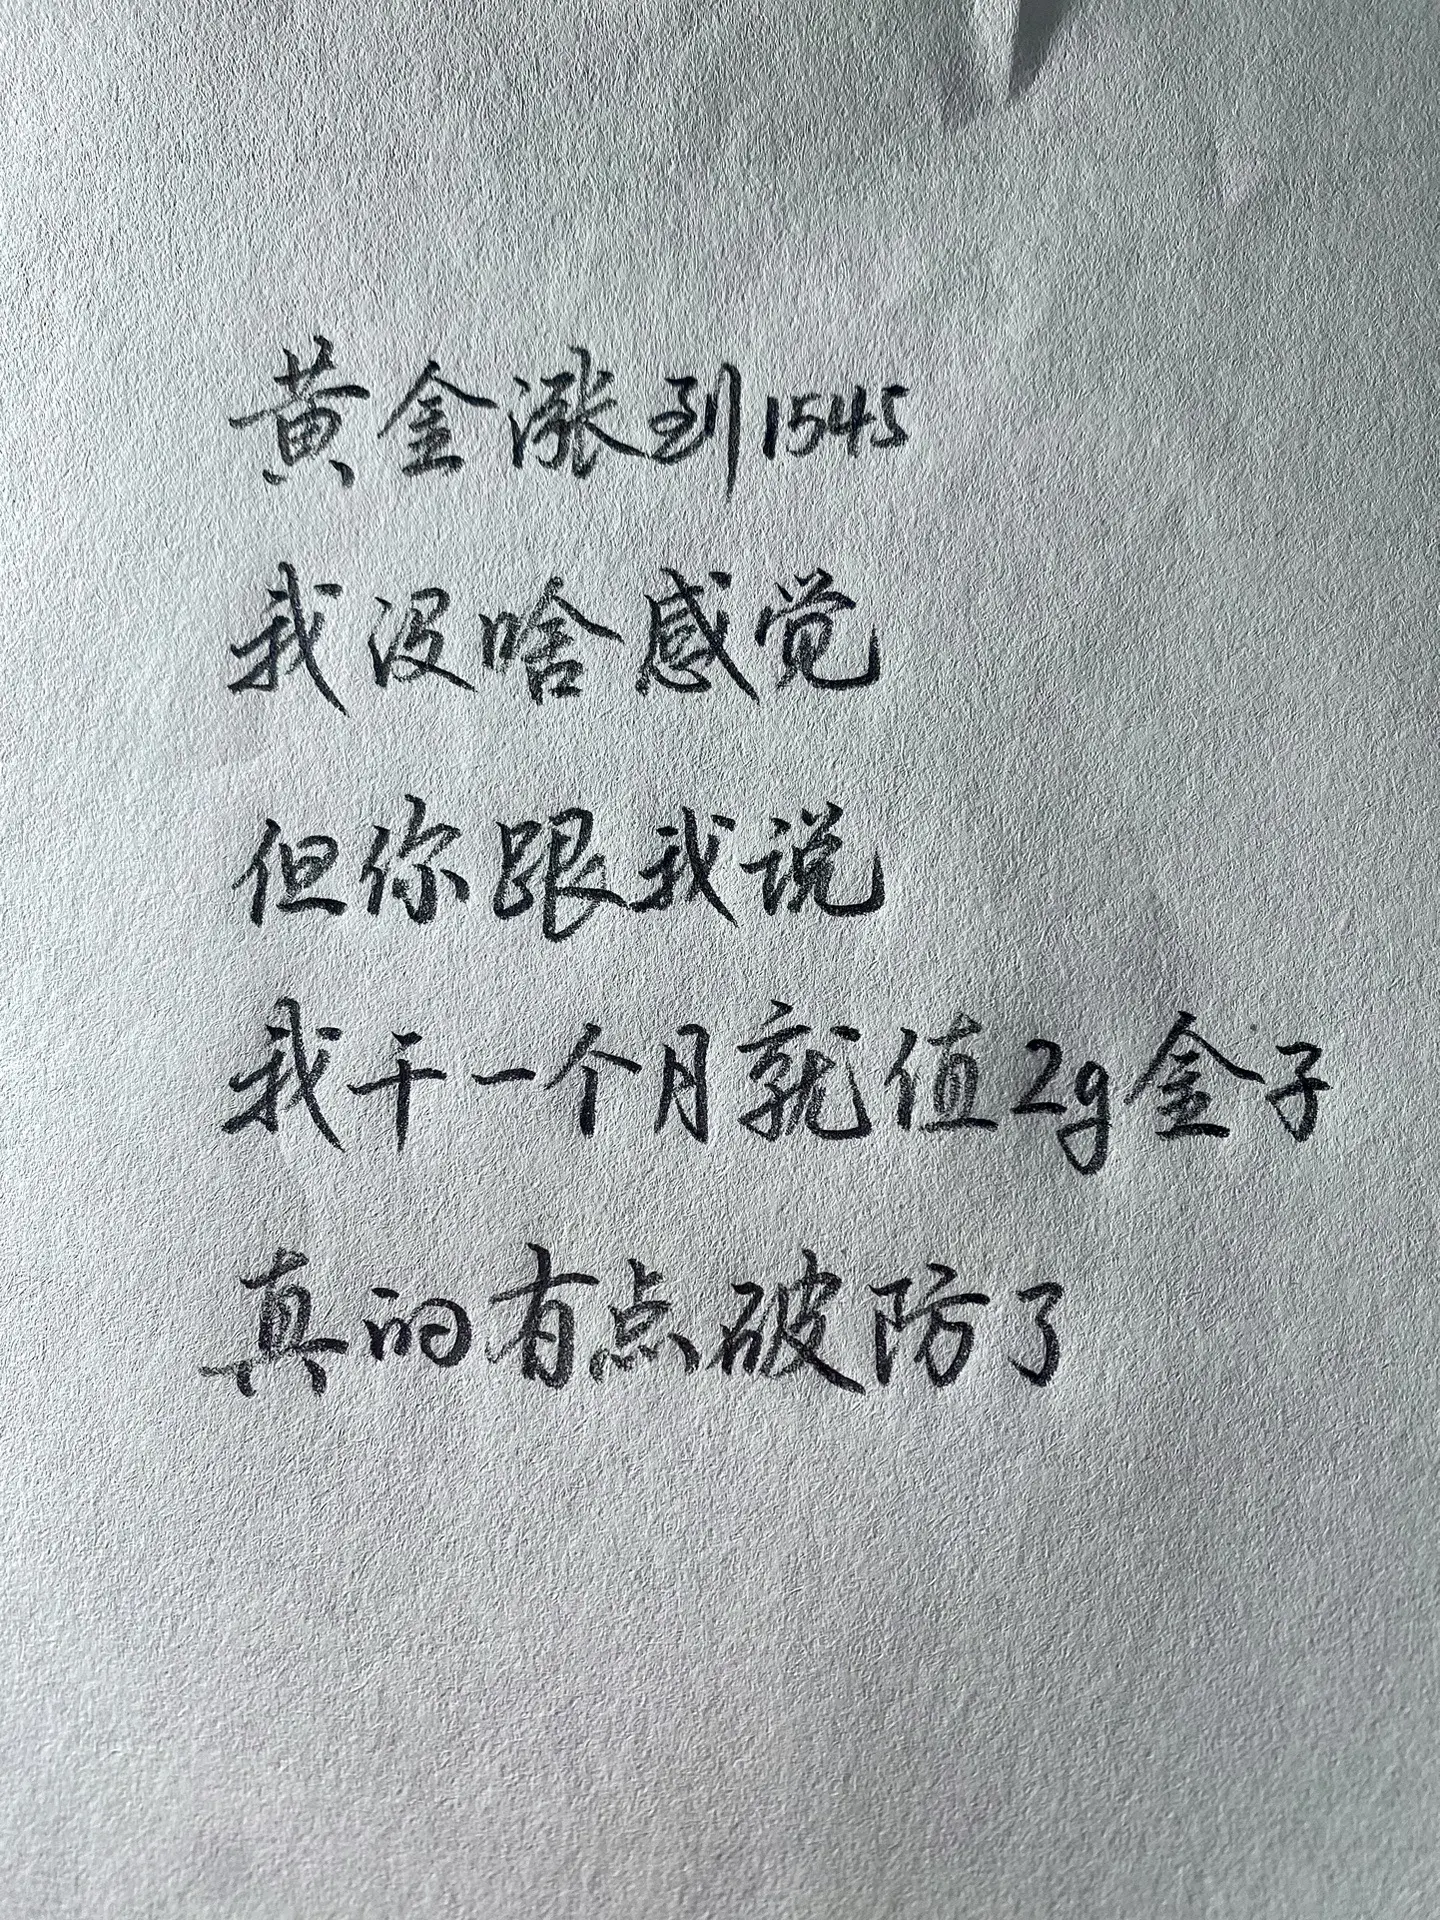 黄金涨到1545
我没啥感觉
但你跟我说
我干一个月就值2g金子
真的有点破防了